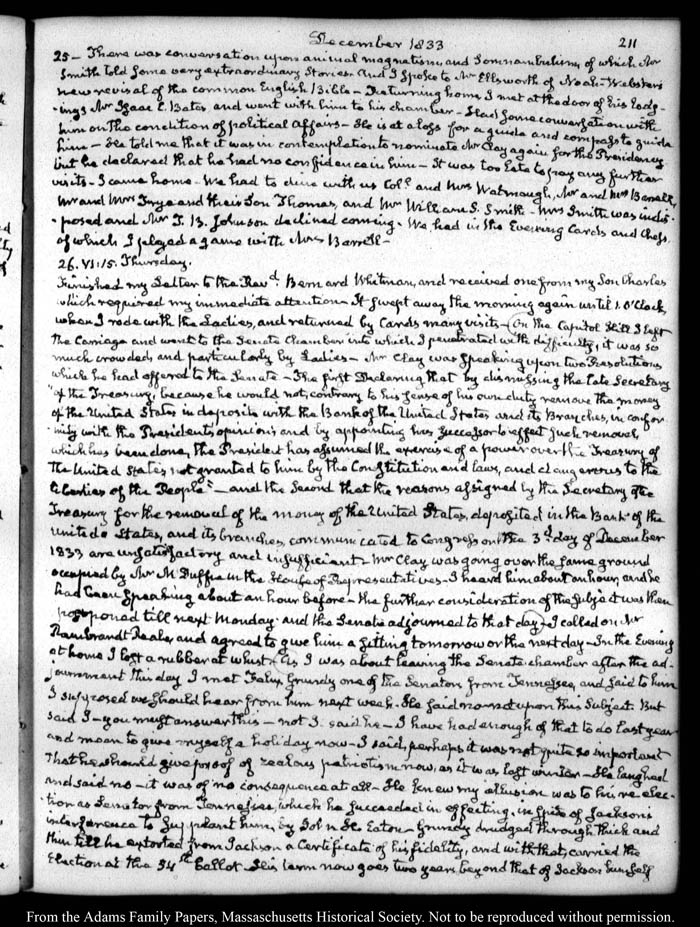 December 1833
211
25 — There was conversation upon animal magnetism, and Somnambulism, of which Mr
Smith told some very extraordinary Stories and I spoke to Mr Ellsworth of Noah Webster's
new revisal of the common English Bible — Returning home I met at the door of his Lodg-
-ings Mr Isaac C. Bates and went with him to his chamber — Had some conversation with
him on the condition of political affairs — He is at a loss for a guide and compass to guide
him — He told me that it was in contemplation to nominate Mr Clay again for the Presidency
but he declared that he had no confidence in him — It was too late to pay any further
visits — I came home — We had to dine with us Coll. and Mrs Watmough, Mr and Mrs Barrell,
Mr and Mrs Frye and their Son Thomas, and Mr William S. Smith — Mrs Smith was indis-
-posed and Mr T. B. Johnson declined coming. We had in the Evening Cards and Chess,
of which I played a game with Mrs Barrell —
26. VI:15. Thursday.
Finished my Letter to the Revd. Bernard Whitman, and received one from my Son Charles
which required my immediate attention — It swept away the morning again until 1. O'Clock,
when I rode with the Ladies, and returned by Cards many visits — On the Capitol Hill I left
the Carriage and went to the Senate Chamber into which I penetrated with difficulty, it was so
much crowded, and particularly by Ladies — Mr Clay was speaking upon two Resolutions
which he had offered to the Senate — The first Declaring that by dismissing the late Secretary
"of the Treasury, because he would not, contrary to his sense of his own duty, remove the money
of the United States in deposite with the Bank of the United States and its Branches, in confor-
-mity with the President's opinion; and by appointing his Successor to effect such removal,
which has been done, the President has assumed the exercise of a power over the Treasury of
the United States, not granted to him by the Constitution and laws, and dangerous to the
liberties of the People" — and the Second that the reasons assigned by the Secretary of the
Treasury for the removal of the money of the United States, deposited in the Bank of the
United States, and its branches, communicated to Congress on the 3d day of December
1833 are unsatisfactory and insufficient — Mr Clay was going over the same ground
occupied by Mr McDuffie in the House of Representatives — I heard him about an hour, and he
had been speaking about an hour before — the further consideration of the subject was then
postponed till next Monday: and the Senate adjourned to that day — I called on Mr
Rembrandt Peale, and agreed to give him a sitting tomorrow or the next day — In the Evening
at home I lost a rubber at whist — As I was about leaving the Senate chamber after the ad-
journment this day I met Felix Grundy one of the Senators from Tennessee, and said to him
I supposed we should hear from him next week. He said no — not upon this Subject. But
said I — you must answer this — not I, said he — I have had enough of that to do last year
and mean to give myself a holiday now — I said, perhaps it was not quite so important
that he should give proof of zealous patriotism now, as it was last winter — He laughed
and said no — it was of no consequence at all — He knew my allusion was to his re-elec-
-tion as Senator from Tennessee, which he succeeded in effecting, in spite of Jackson's
interference to supplant him, by John H. Eaton — Grundy drudged through thick and
thin till he extorted from Jackson a Certificate of his fidelity, and with that, carried the
Election at the 54th ballot. His term now goes two years beyond that of Jackson himself
From the Adams Family Papers, Massachusetts Historical Society. Not to be reproduced without permission.